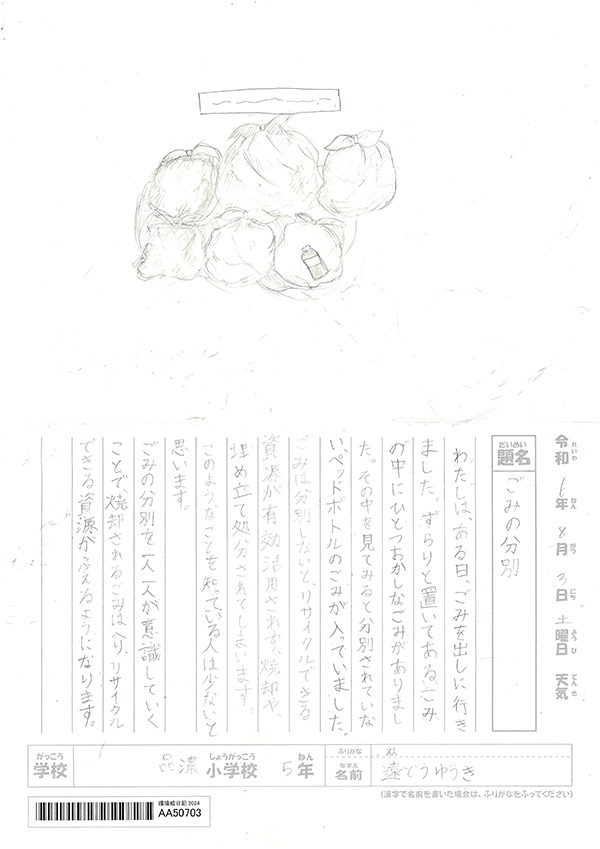 令和 6年 8月 3日 土曜日 天気
れいわ ねん がつ にち ようび てんき
だいめい
題名
ごみの分別
わたしは、ある日、ごみを出しに行き
ました。ずらりと置いてあるごみ
の中にひとつおかしなごみがありまし
た。その中を見てみると分別されていな
いペッドボトルのごみが入っていました。
ごみは分別しないと、リサイクルできる
資源が有効活用されず、焼却や、
埋め立て処分されてしまいます。
このようなことを知っている人は少ないと
思います。
ごみの分別を一人一人が意識していく
ことで、焼却されるごみはへり、リサイクル
できる資源がふえるようになります。
がっこう
学校
品濃
しょうがっこう
小学校
5
ねん
年
ふりがな
なまえ
名前
えん
遠どうゆうき
(漢字で名前を書いた場合は、ふりがなをふってください)
環境絵日記 2024
AA50703